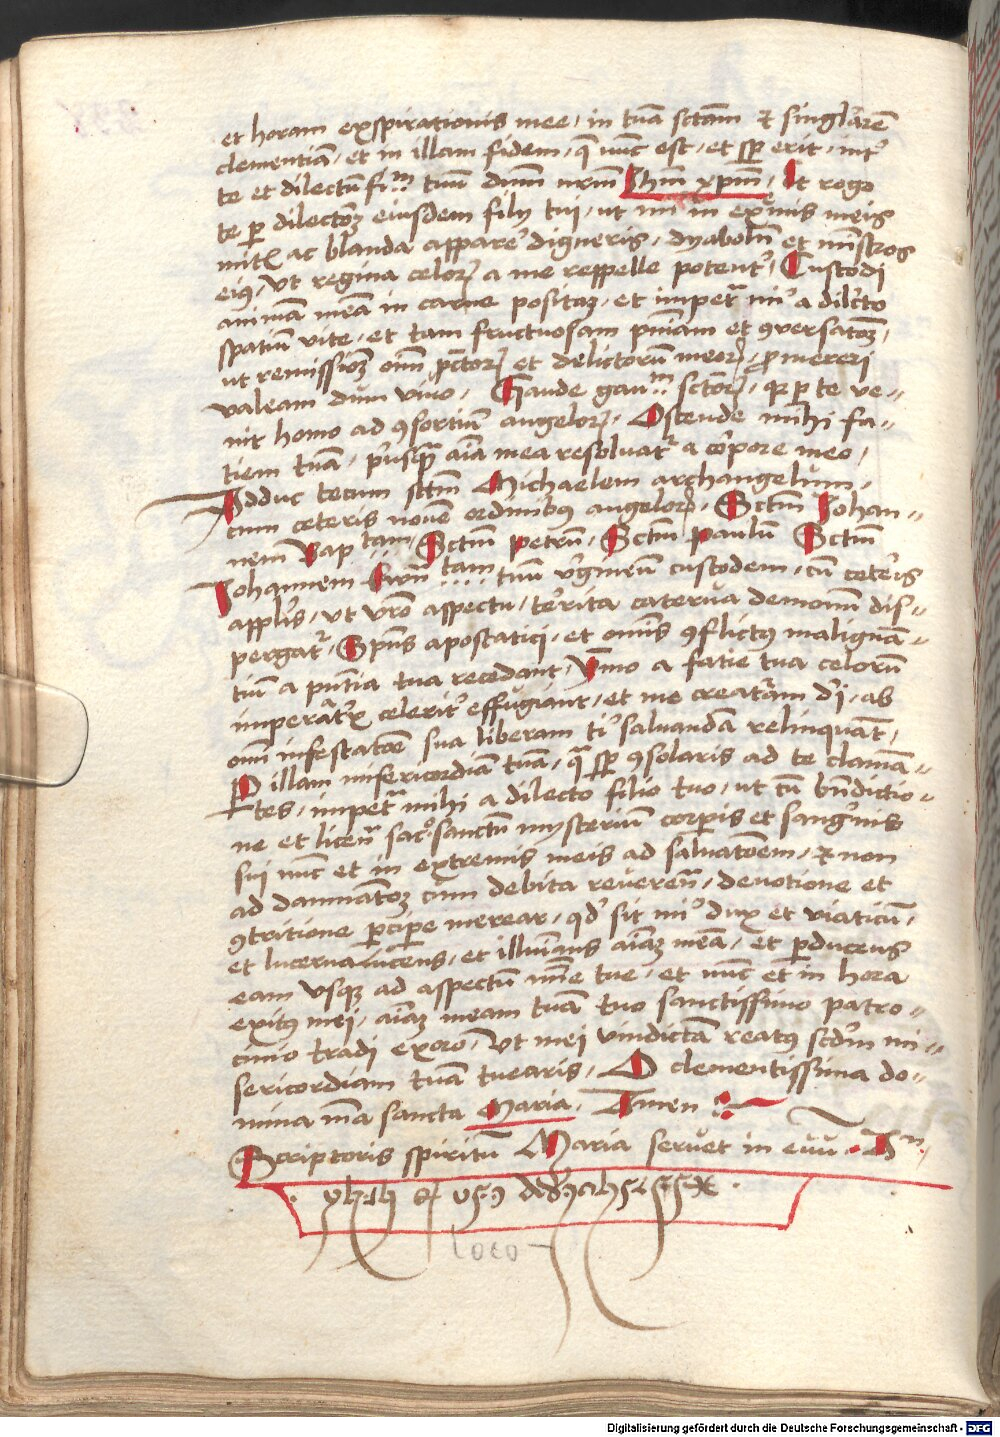 et horam exspirationis mee, in tuā sctam & singlarē
clementiā, et in illam fidem, q̄ nūc est, et sp̄ erit, int̉
te et dilectū fi.m tuū dnm nrm Ihm xpm, Et rogo
te p̱ dilectōꝫ eiusdem filij tui, ut mi in extmis meis
mitꝭ ac blanda appare' digneris, dyabolū et mistros
eiꝰ, Vt regina celoꝝ a me reppelle potent̉, Custodi
animā meā in carne positaꝫ, et impet̄ mi' a dilc̄to
spatiū vite, et tam fructuosam pn̄iam et ꝯversatōꝫ,
ut remissiōꝫ oīm pctoꝝ et delictorū meoꝝ, ꝓmereri
valeam dum vivo, Gaude gau.m sctoꝝ, qꝛ p̱ te ve-
nit homo ad ꝯsortiū angeloꝝ, Ostende mihi fa-
tiem tuā, priusqꝫ aīa mea resolvat̉ a corpore meo,
Adduc tecum sctm Michaelem archangelum,
cum ceteris novē ordinibꝰ angeloꝝ, Sctm Johan-
nem Baptam, Sctm Petrū, Sctm Paulū Sctm
Johannem Ewātam tuū v̉ginēū custodem, cū cete'is
applis, ut vrō aspectu, te'rita caterva demonū dis-
pergat̉, Spūs apostatici, et omīs ꝯflictꝰ malignā-
tiū a pūtia tua recedant, Ymo a fatie tua celorū
imperatꝛ̄x celerit̉ effugiant, et me creat̉am dī, ab
omī infestatōe sua liberam ti' salvandā relinquāt,
P̱ illam misericordiā tuā, q̄ sp̄ ꝯsolaris ad te clamā-
tes, impet̄ mihi a dilecto filio tuo, ut cū bn̄dictio-
ne et licen̄ sac.o sanctū mysteriū corp̱is et sang'nis
sui nūc et in extremis meis ad salvatōem, & non
ad damnatōꝫ cum debita reveren̄, devotione et
ꝯtritione p̱cip̱e merear, qd' sit mi' dux et viaticū,
et lucerna lucens, et illuīnans aīaꝫ meā, et p̱ducens
eam usqꝫ ad aspectū mīe tue, et nūc et in hora
exitꝰ mei, aīaꝫ meam tuā tuo sanctissimo patro-
cinio tradi exoro, Ut mei vindictā reatꝰ scd'm mi-
sericordiam tuā tuearis, O clementissima do-
mina mā sancta Maria. Amen
Scriptoris spiritū Maria servet in evū. An.
Loco
Digitalisierung gefördert durch die Deutsche Forschungsgemeinschaft - DFG